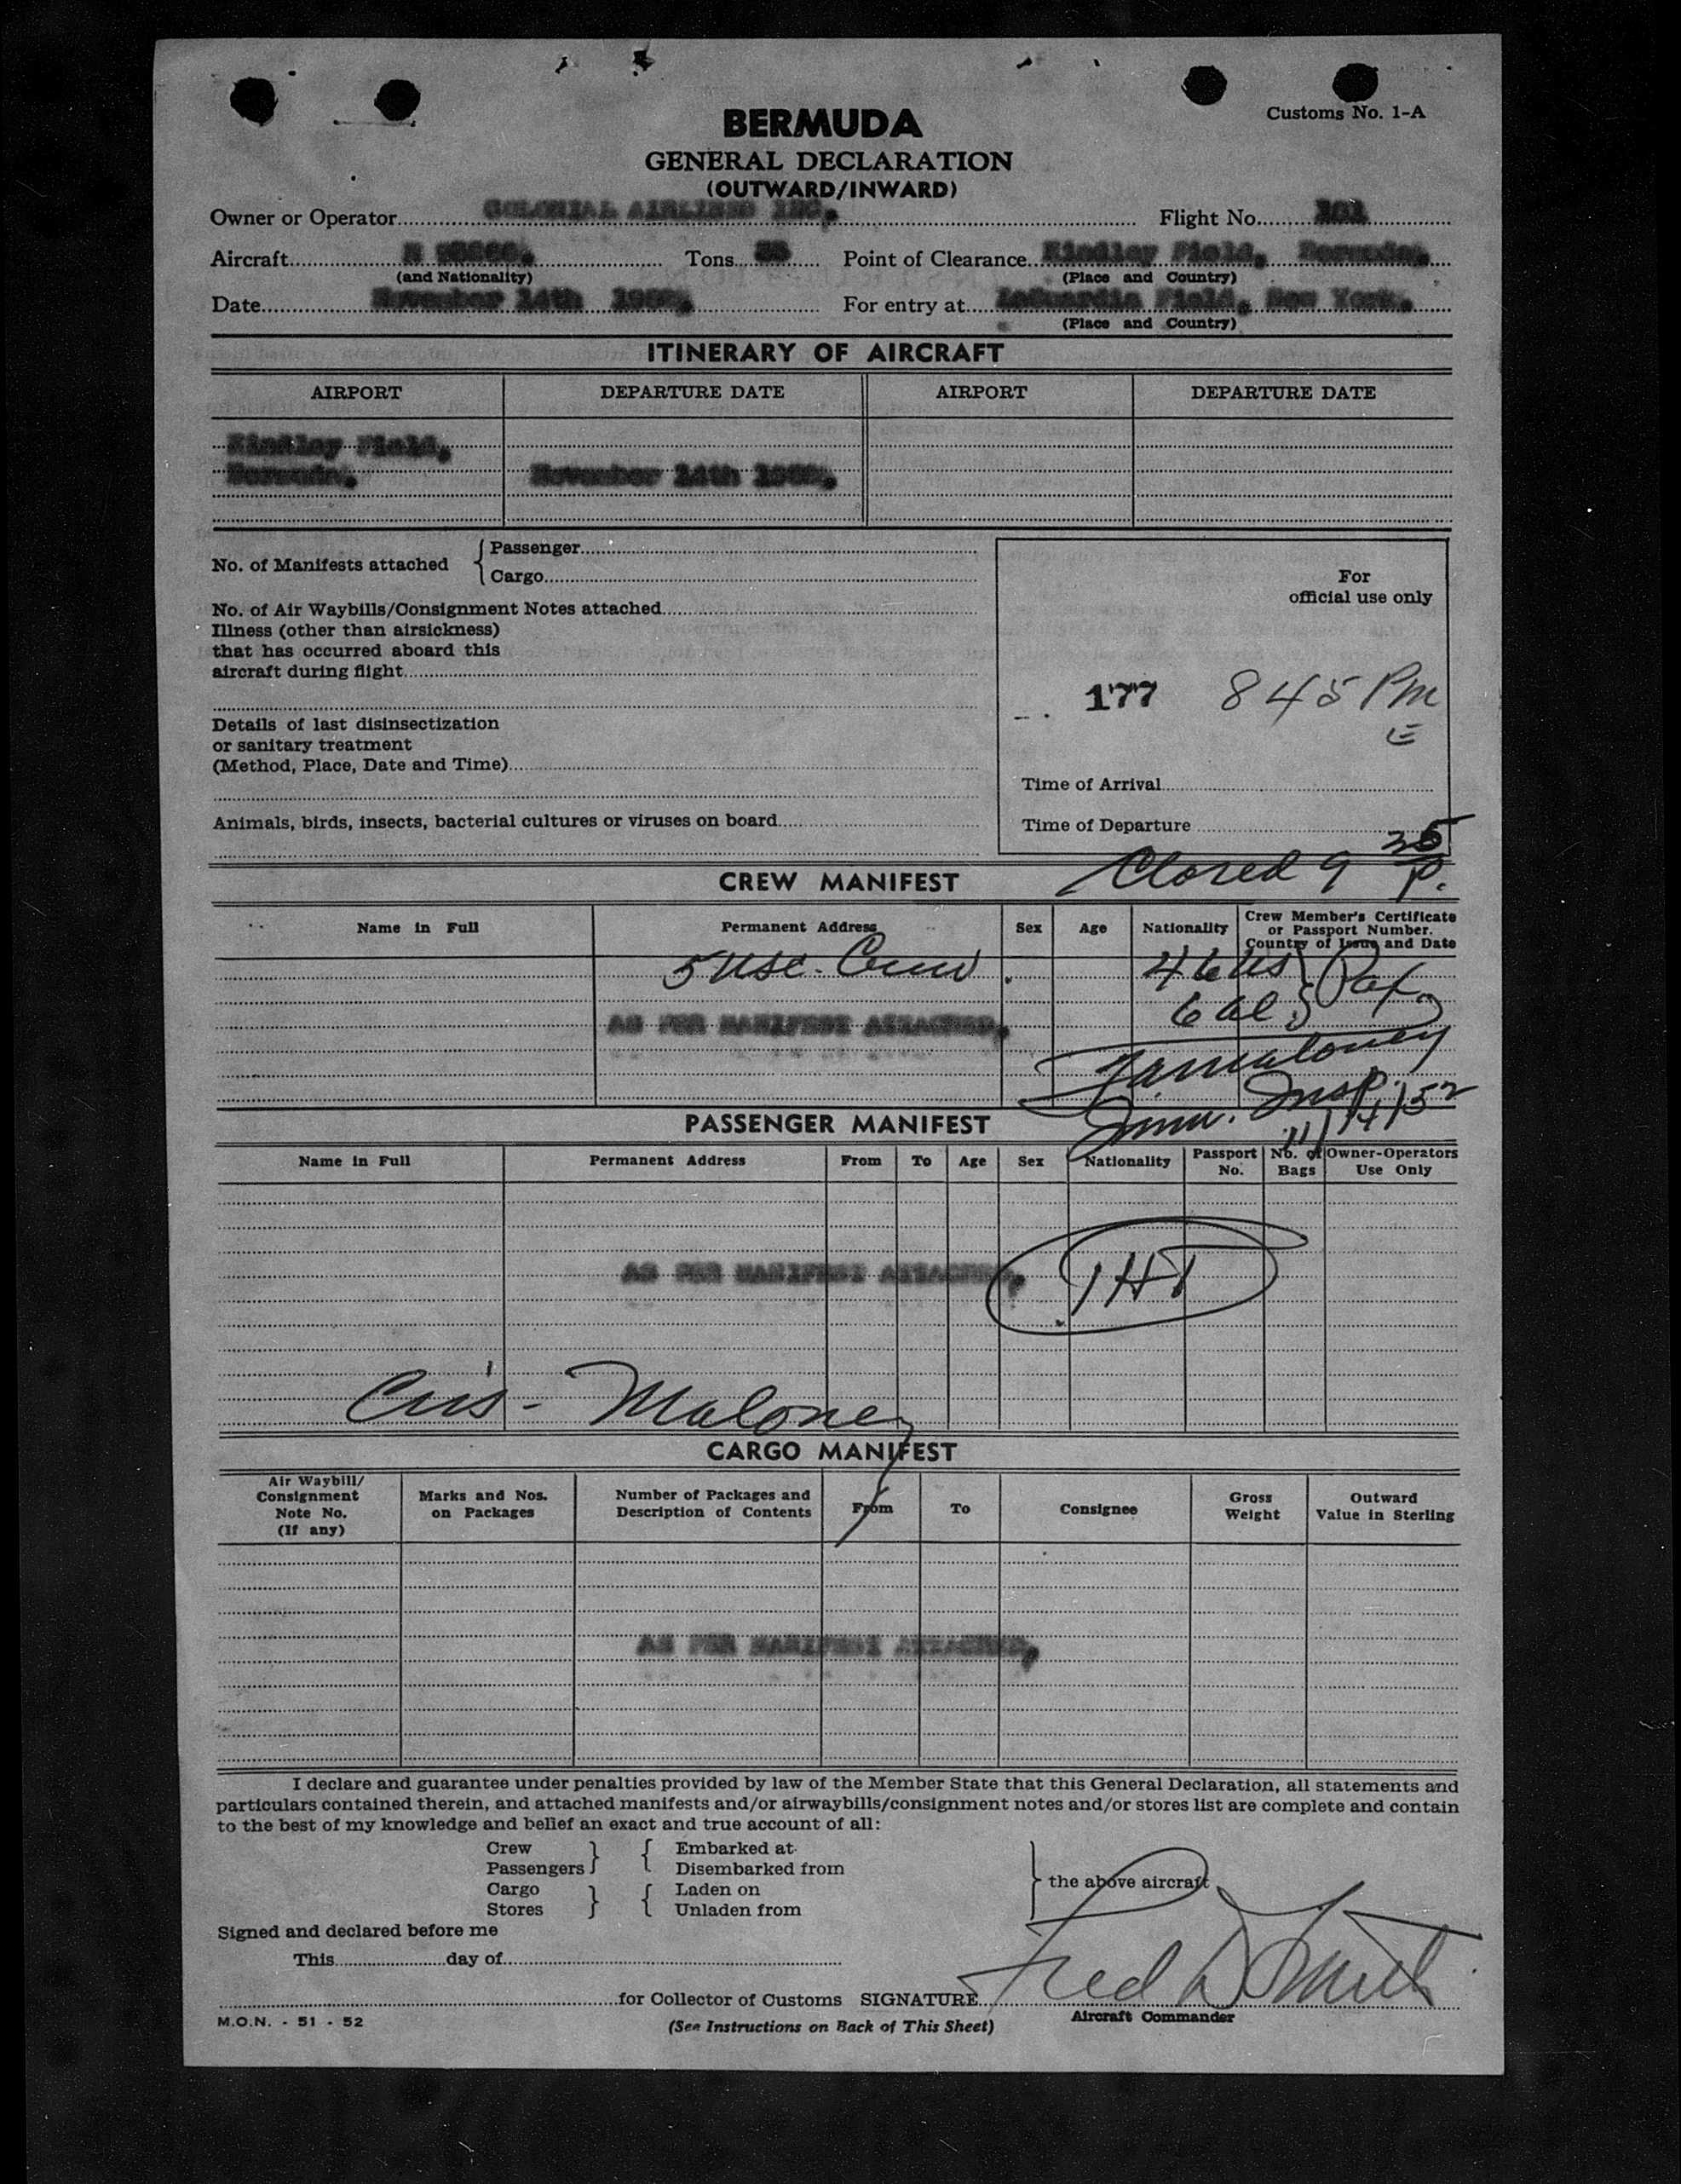 Customs No. 1-A
BERMUDA
GENERAL DECLARATION
(OUTWARD/INWARD)
Owner or Operator COLONIAL AIRLINES INC. Flight No.
Aircraft N Tons Point of Clearance Kindley Field, Bermuda.
(and Nationality) (Place and Country)
Date November 14th 1952. For entry at LaGuardia Field, New York.
(Place and Country)
ITINERARY OF AIRCRAFT
AIRPORT DEPARTURE DATE AIRPORT DEPARTURE DATE
Kindley Field,
Bermuda. November 14th 1952.
No. of Manifests attached { Passenger
Cargo
For
official use only
No. of Air Waybills/Consignment Notes attached
Illness (other than airsickness)
that has occurred aboard this
aircraft during flight
177 845 PM
E
Details of last disinsectization
or sanitary treatment
(Method, Place, Date and Time)
Time of Arrival
Animals, birds, insects, bacterial cultures or viruses on board
Time of Departure
Closed 9 35 P.
CREW MANIFEST
Name in Full Permanent Address Sex Age Nationality Crew Member's Certificate
or Passport Number.
Country of Issue and Date
5 USC. Crew 46 US } Pax
6 Al }
AS PER MANIFEST ATTACHED.
Maloney
Imm. Insp.
11/14/52
PASSENGER MANIFEST
Name in Full Permanent Address From To Age Sex Nationality Passport No. No. of Bags Owner-Operators Use Only
AS PER MANIFEST ATTACHED. THT
Maloney
CARGO MANIFEST
Air Waybill/ Consignment Note No. (If any) Marks and Nos. on Packages Number of Packages and Description of Contents From To Consignee Gross Weight Outward Value in Sterling
AS PER MANIFEST ATTACHED.
I declare and guarantee under penalties provided by law of the Member State that this General Declaration, all statements and
particulars contained therein, and attached manifests and/or airwaybills/consignment notes and/or stores list are complete and contain
to the best of my knowledge and belief an exact and true account of all:
Crew } { Embarked at
Passengers Disembarked from
} the above aircraft
Cargo } { Laden on
Stores Unladen from
Signed and declared before me
This day of
Fred D Smith
for Collector of Customs SIGNATURE
Aircraft Commander
M.O.N. - 51 - 52
(See Instructions on Back of This Sheet)